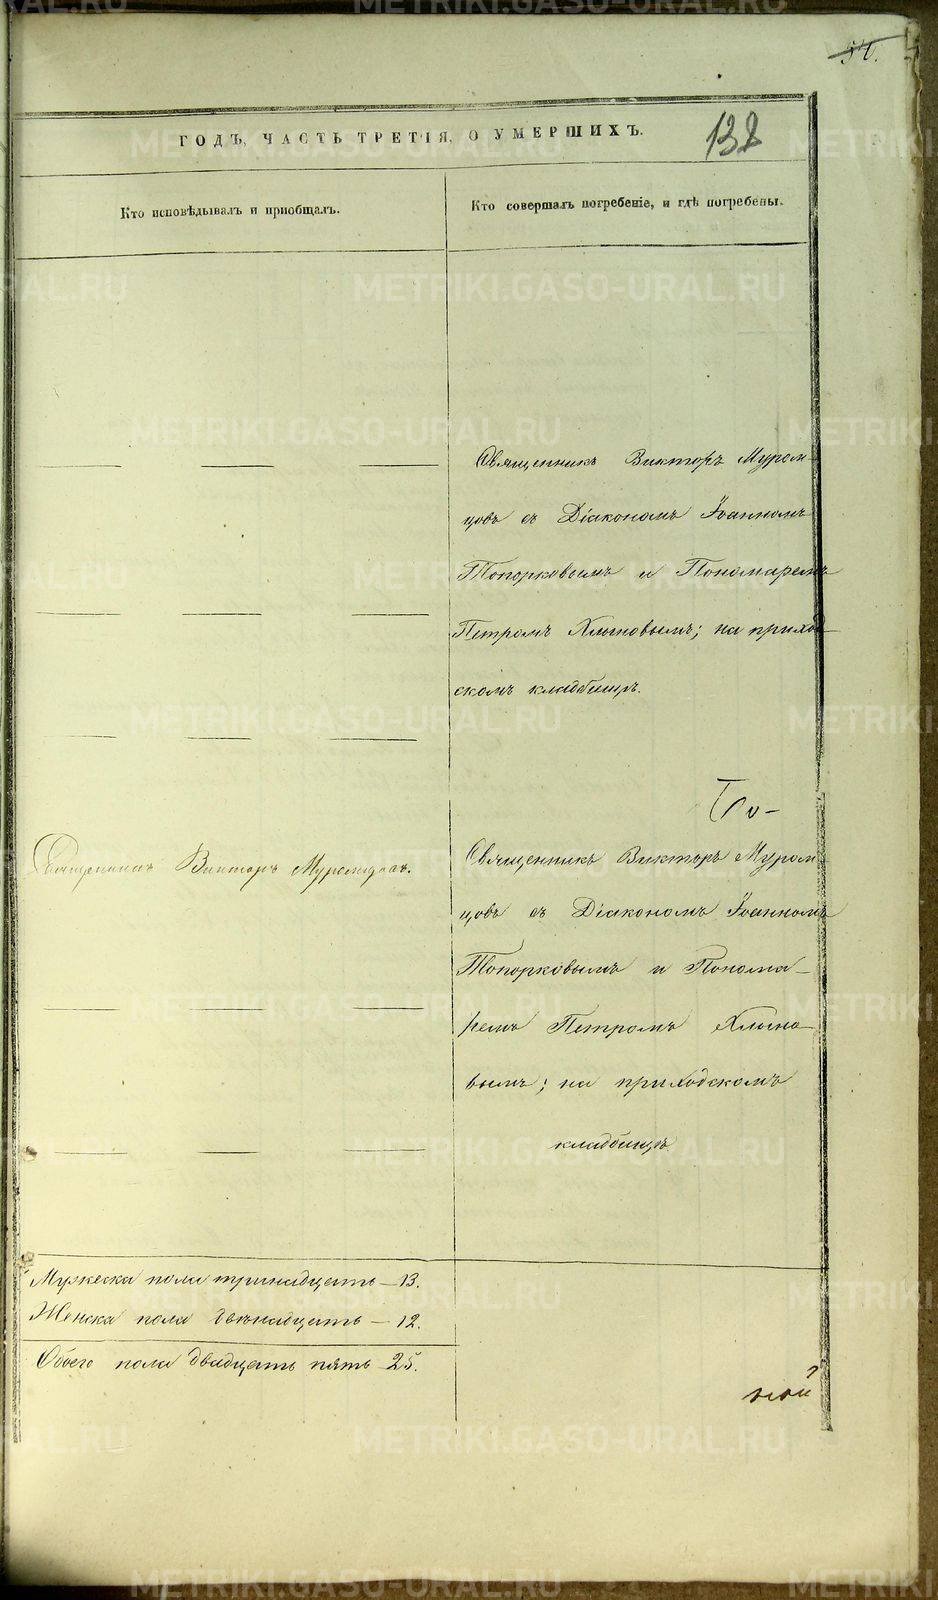 54.
ГОДЪ, ЧАСТЬ ТРЕТІЯ, О УМЕРШИХЪ.
138
Кто исповѣдывалъ и пріобщалъ.
Кто совершалъ погребеніе, и гдѣ погребены.
Священникъ Викторъ Муром-
цовъ съ Діакономъ Іоанномъ
Топорковымъ и Пономаремъ
Петромъ Хлыновымъ; на приход-
скомъ кладбищѣ.
Священникъ Викторъ Муромцовъ.
Священникъ Викторъ Муром-
цовъ съ Діакономъ Іоанномъ
Топорковымъ и Понома-
ремъ Петромъ Хлыно-
вымъ; на приходскомъ
кладбищѣ
Мужеска пола тринадцать – 13.
Женска пола двѣнадцать – 12.
Обоего пола двадцать пять 25.
ной
METRIKI.GASO-URAL.RU